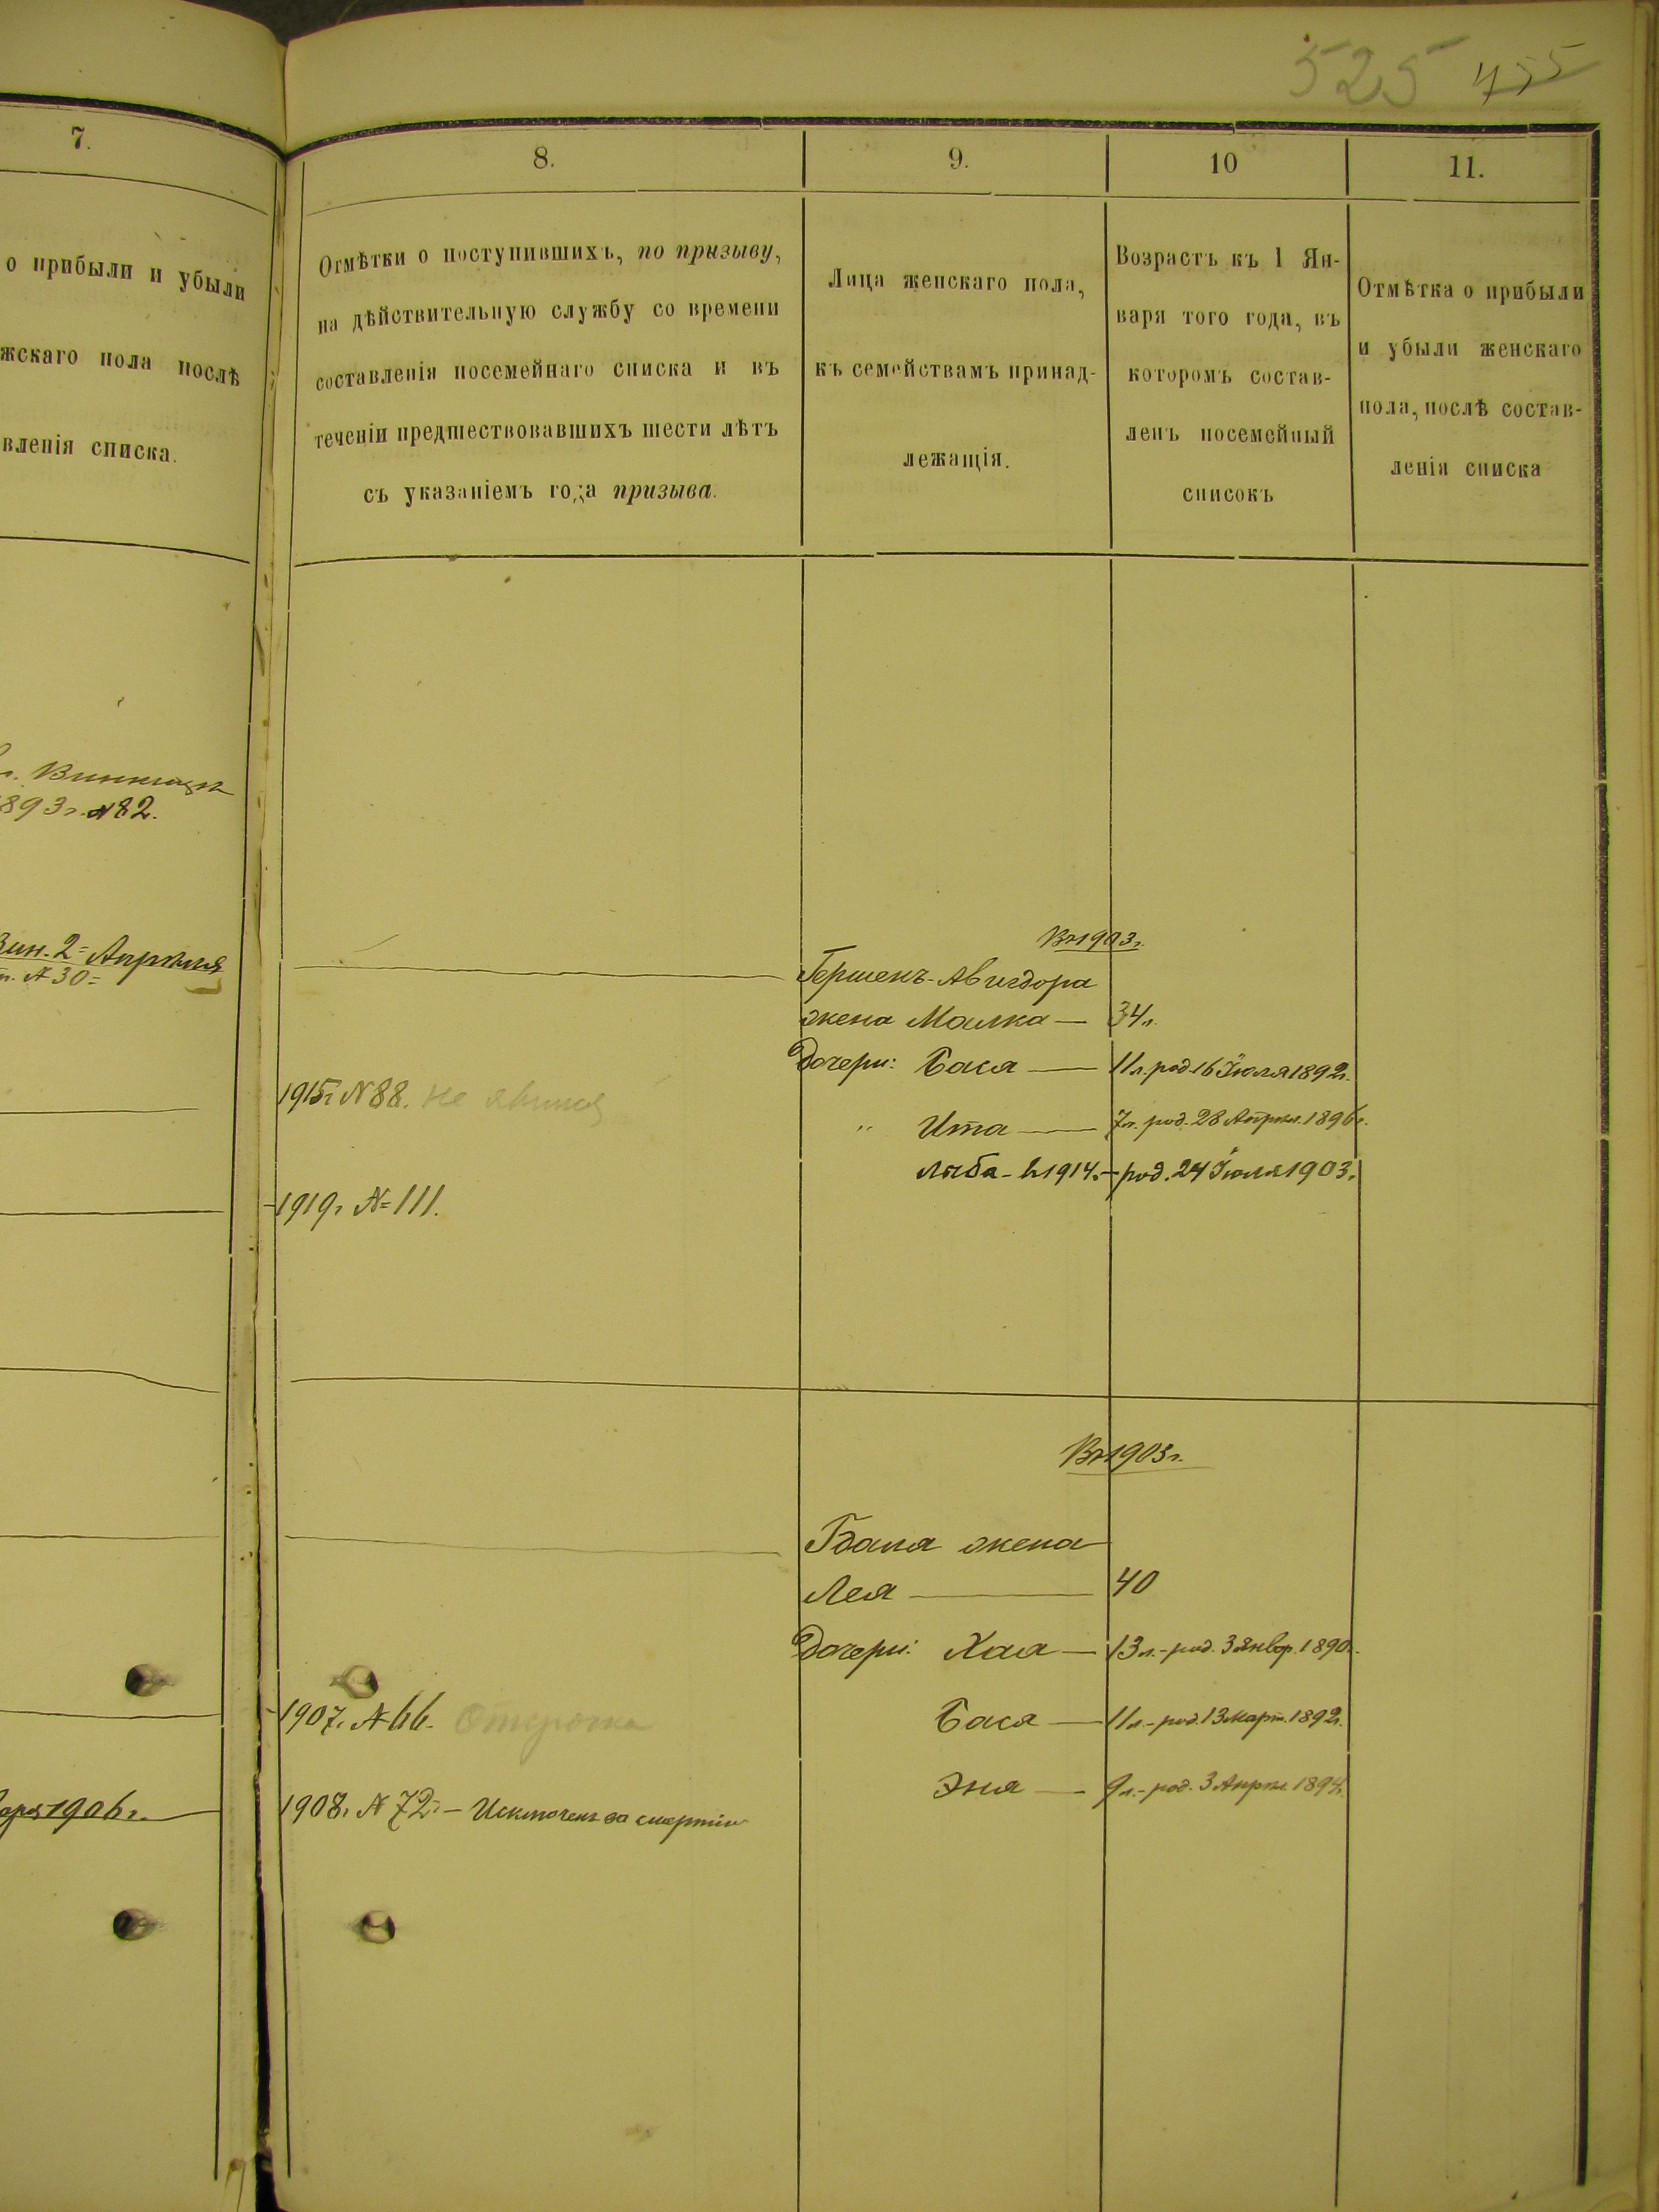 525 455
7.
8.
9.
10
11.
о прибыли и убыли
жскаго пола послѣ
вленія списка.
Отмѣтки о поступившихъ, по призыву,
на дѣйствительную службу со времени
составленія посемейнаго списка и въ
теченіи предшествовавшихъ шести лѣтъ
съ указаніемъ года призыва.
Лица женскаго пола,
къ семействамъ принад-
лежащія.
Возрастъ къ 1 Ян-
варя того года, въ
которомъ состав-
ленъ посемейный
списокъ
Отмѣтка о прибыли
и убыли женскаго
пола, послѣ состав-
ленія списка
893г. №82.
Вин. 2= Апрѣля
№30=
Въ 1903г.
Гершенъ-Авигдора
жена Малка — 34л.
Дочери: Бася — 11л. род. 16 Іюля 1892г.
1915г. №88. не явился
" Ита — 7л. род. 28 Апрѣл. 1896г.
Люба - въ 1914г. - род. 24 Іюля 1903г.
1919г. №111.
Въ 1903г.
Гданя жена
Лея — 40
Дочери: Хая — 13л. - род. 3 Янвр. 1890г.
1907г. №66. Отсрочка
Бася — 11л. - род. 13 Март. 1892г.
Эня — 9л. - род. 3 Апрѣл. 1894г.
1906г.
1908г. №72 - Исключенъ за смертію